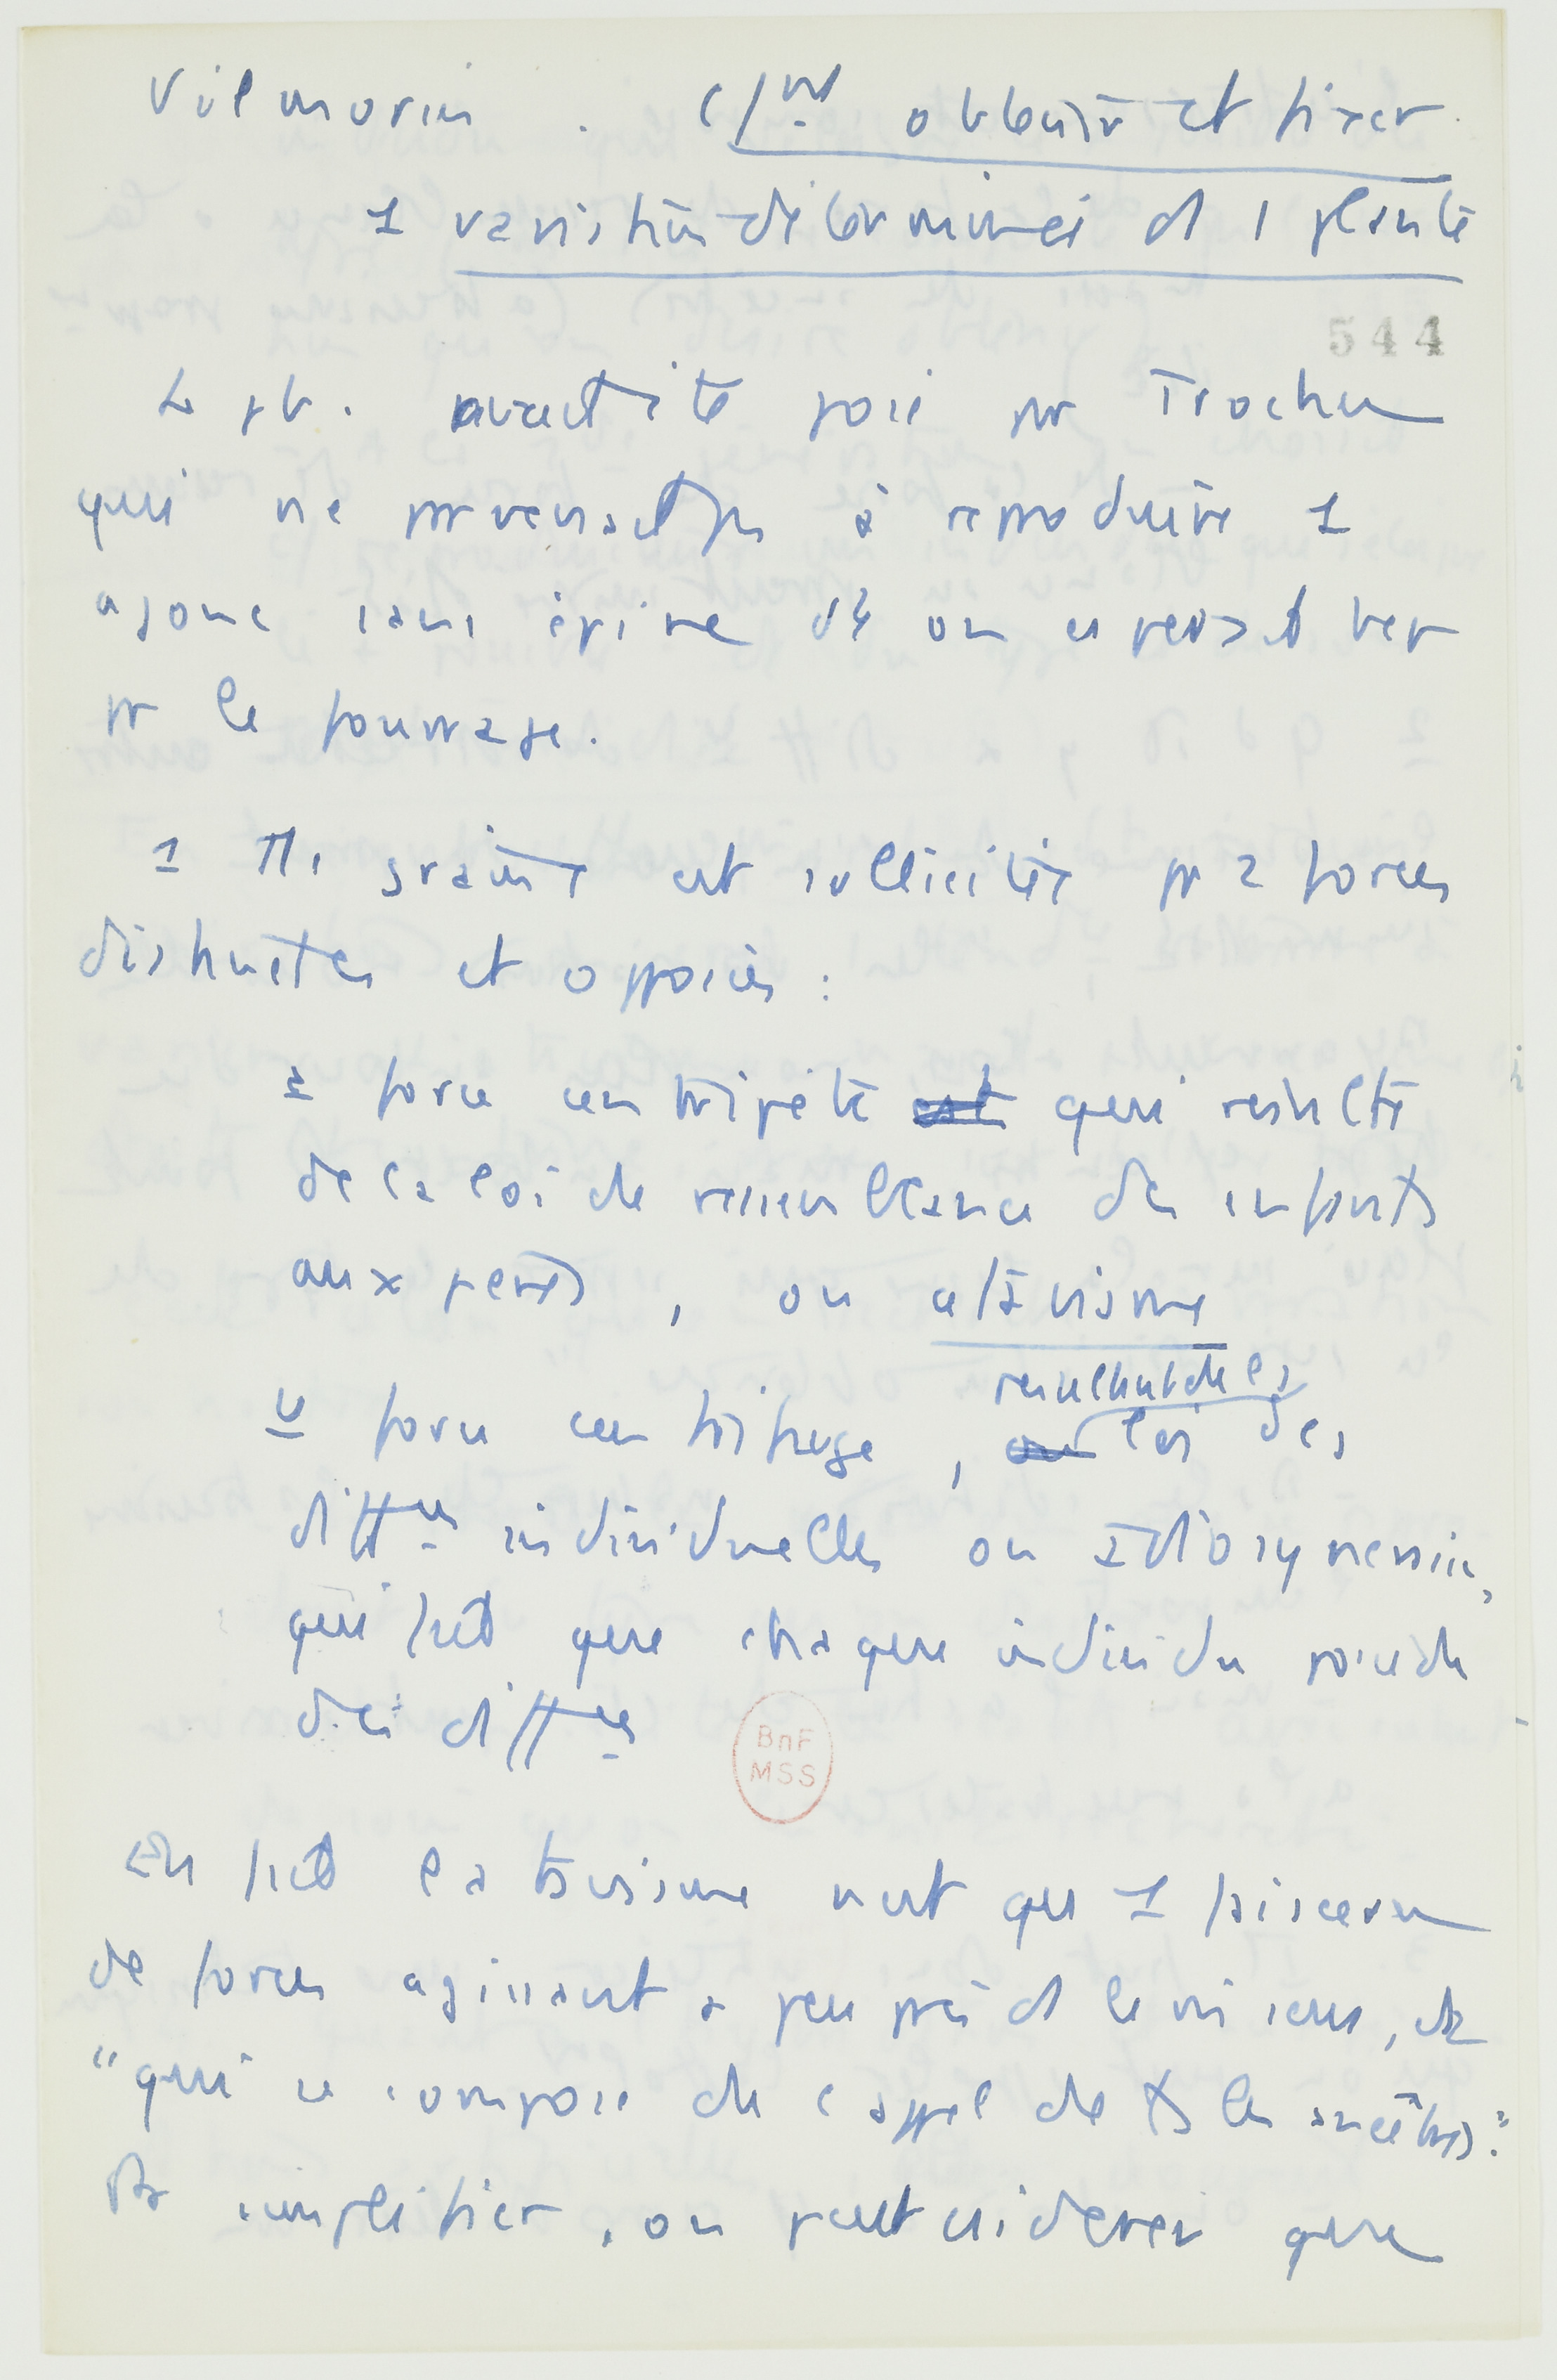 Vilmorin . C/nt obtenir et fixer
1 variation déterminée d 1 plante
544
Le pb. avait été posé par Trochu
qui ne parvenait pas à reproduire 1
ajonc sans épine dt on se servait
pr le fourrage.
1 m graine est sollicitée pr 2 forces
distinctes et opposées :
a force centripète est qui résulte
de la loi de ressemblance des enfants
aux pères, ou atavisme
résultant de la
b force centrifuge, ou loi des
diffces individuelles ou idiosyncrasie,
qui fait que chaque individu possède
des diffces
BnF
MSS
En fait l'atavisme n'est qu 1 faisceau
de forces agissant à peu près d le m sens, et
"qui se compose de l'appel de ts les ancêtres".
Pr simplifier, on peut csiderer que